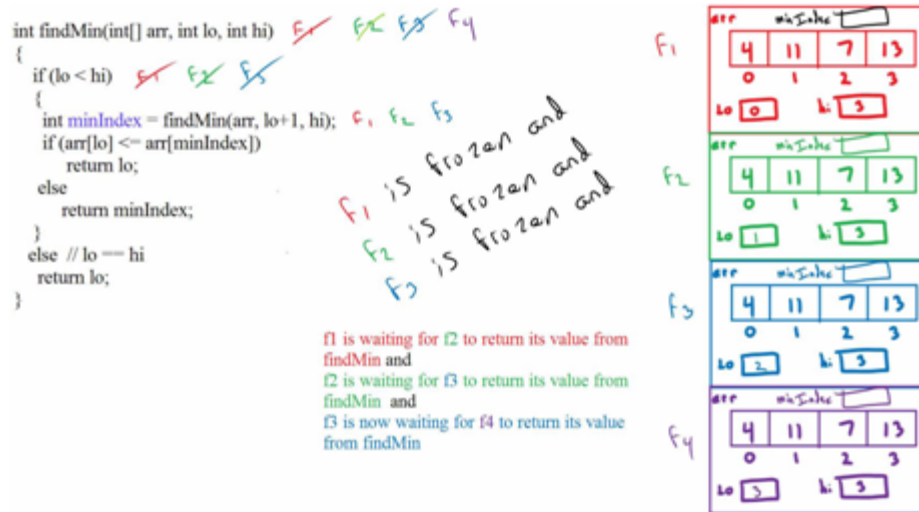 int findMin(int[] arr, int lo, int hi) f1 f2 f3 f4
{
if (lo < hi) f1 f2 f3
{
int minIndex = findMin(arr, lo+1, hi); f1 f2 f3
if (arr[lo] <= arr[minIndex])
return lo;
else
return minIndex;
}
else // lo == hi
return lo;
}
f1 is frozen and
f2 is frozen and
f3 is frozen and
f1 is waiting for f2 to return its value from
findMin and
f2 is waiting for f3 to return its value from
findMin and
f3 is now waiting for f4 to return its value
from findMin
f1
arr minIndex
4 11 7 13
0 1 2 3
Lo 0 hi 3
f2
arr minIndex
4 11 7 13
0 1 2 3
Lo 1 hi 3
f3
arr minIndex
4 11 7 13
0 1 2 3
Lo 2 hi 3
f4
arr minIndex
4 11 7 13
0 1 2 3
Lo 3 hi 3